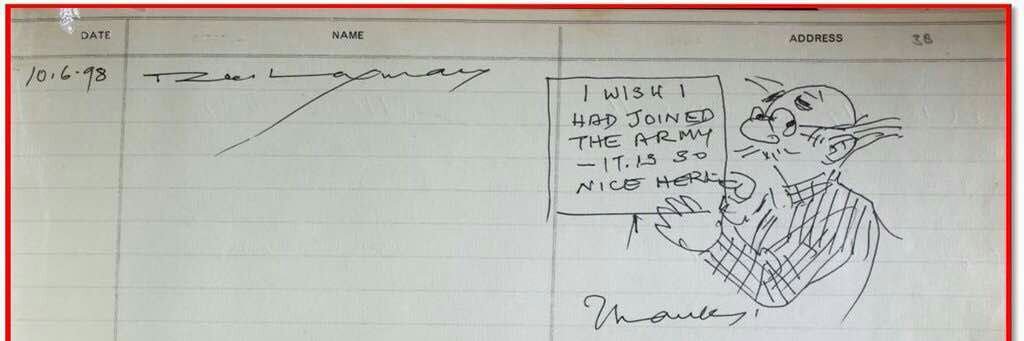 DATE NAME ADDRESS 3B
10.6.98 R K Laxman
I WISH I
HAD JOINED
THE ARMY
— IT IS SO
NICE HERE
Thanks!